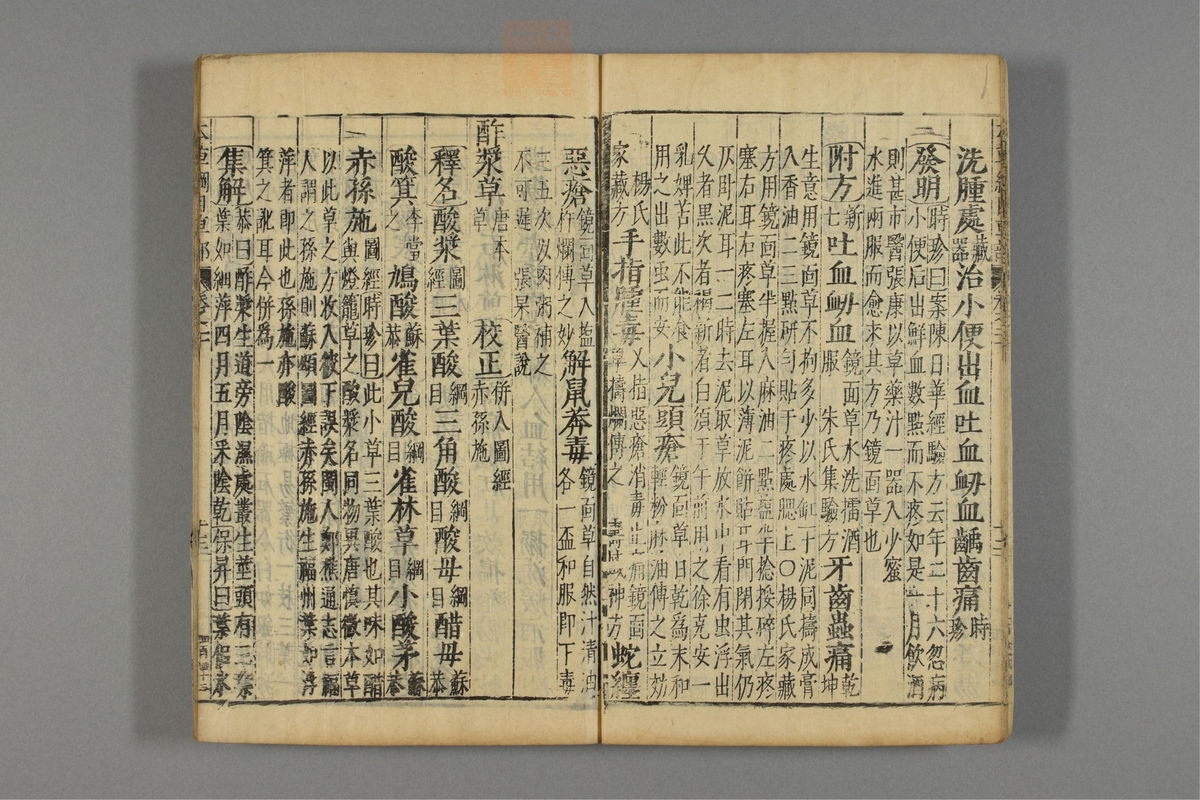 洗腫處藏器治小便出血吐血衂血齲齒痛時珍
發明時珍曰案陳日華經驗方云年二十六忽病
小便後出鮮血數點而不疼如是一月飲酒
則甚市醫張康以草藥汁一器入少蜜
水進兩服而愈求其方乃鏡面草也
附方新七吐血衂血鏡面草水洗擂酒服 朱氏集驗方牙齒蟲痛乾坤
生意用鏡面草不拘多少以水缸下泥同擣成膏
入香油二三點研勻貼于疼處腮上〇楊氏家藏
方用鏡面草半握入麻油二點鹽半捻挼碎左疼
塞右耳右疼塞左耳以薄泥餅貼耳門閉其氣仍
仄卧泥耳一二時去泥取草放水中看有虫浮出
久者黑次者褐新者白須于午前用之徐克安一
乳婢苦此不能食
用之出數虫而安小兒頭瘡鏡面草日乾爲末和輕粉麻油傅之立効
楊氏家藏方手指腫毒又指惡瘡消毒鏡面草擣爛傅之 神方蛇纏
惡瘡鏡面草入鹽杵爛傅之妙解鼠莽毒鏡面草自然汁清油各一盃和服即下毒
三五次以肉粥補之
不可遲 張杲醫說
酢漿草唐本草校正併入圖經赤孫施
釋名酸漿圖經三葉酸綱目三角酸綱目酸母綱目醋母蘇恭
酸箕李當之鳩酸蘇恭雀兒酸綱目雀林草綱目小酸茅蘇恭
赤孫施圖經時珍曰此小草三葉酸也其味如醋
與燈籠草之酸漿名同物異唐慎微本草
以此草之方收入彼下誤矣閩人鄭樵通志言福
人謂之孫施則蘇頌圖經赤孫施生福州葉如浮
萍者即此也孫施亦酸
箕之訛耳今併爲一
集解恭曰酢漿生道旁陰濕處叢生莖頭有三葉
葉如細萍四月五月采陰乾保昇曰葉